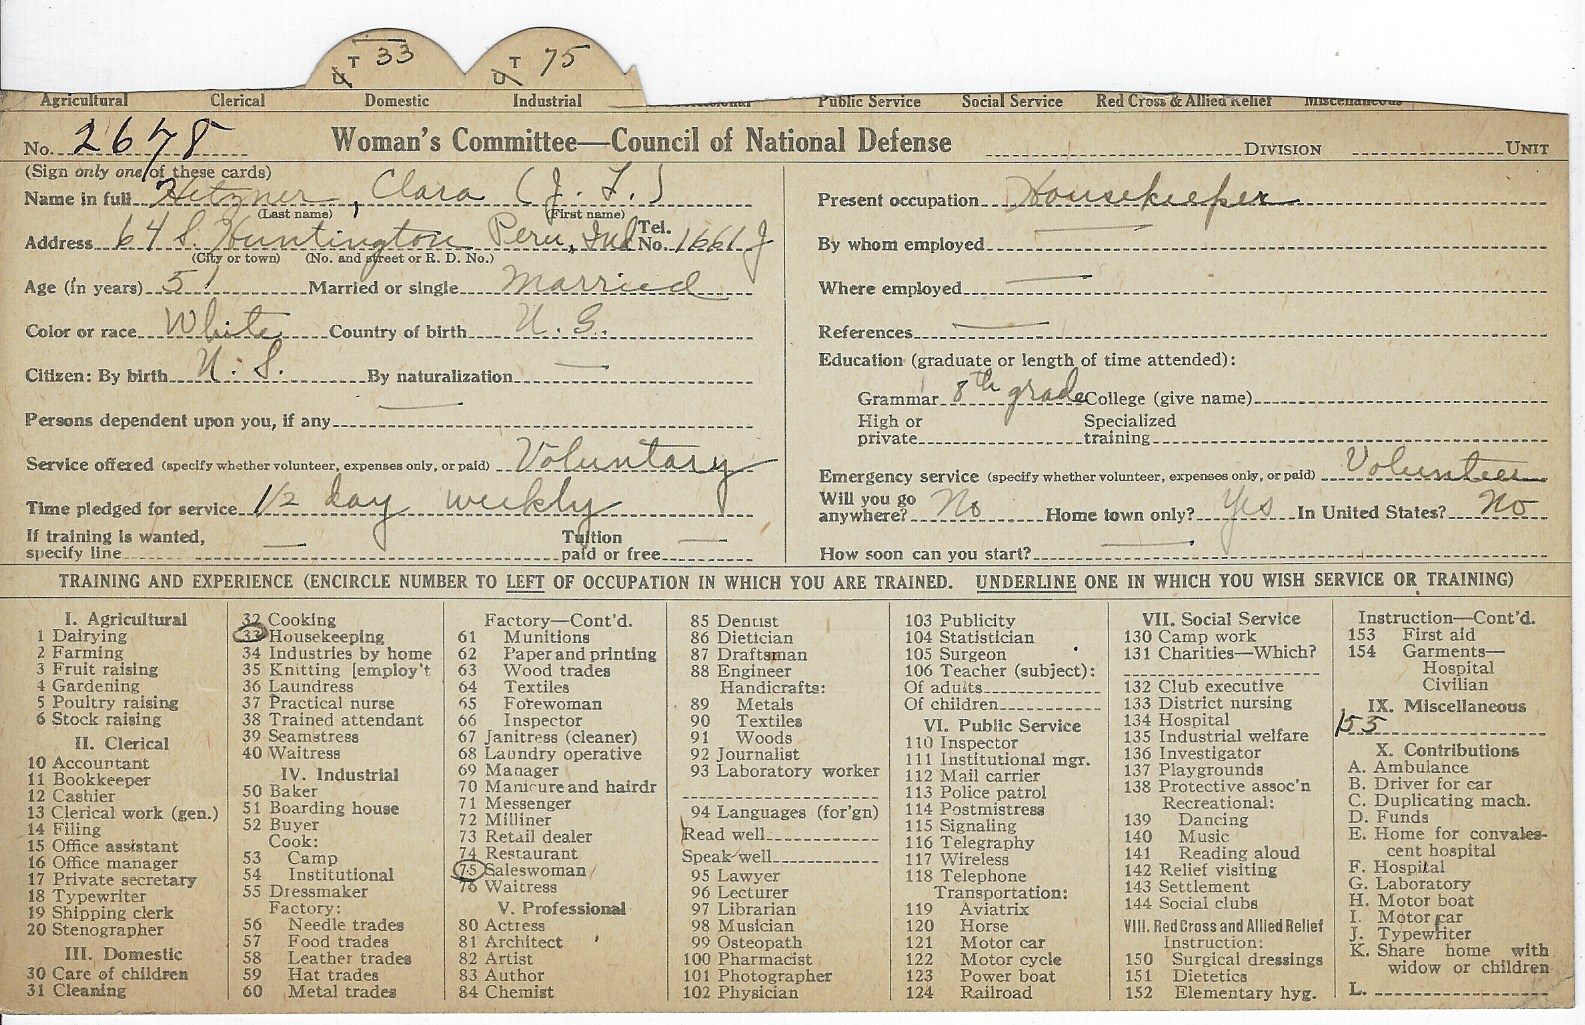 T 33
U
T 75
U
Agricultural Clerical Domestic Industrial Professional Public Service Social Service Red Cross & Allied Relief Miscellaneous
No. 2678 Woman's Committee—Council of National Defense DIVISION UNIT
(Sign only one of these cards)
Name in full Hitzner, Clara (J. F.)
(Last name) (First name)
Address 64 S. Huntington Peru, Ind Tel. No. 1661 J
(City or town) (No. and street or R. D. No.)
Age (in years) 51 Married or single Married
Color or race White Country of birth U. S.
Citizen: By birth U. S. By naturalization —
Persons dependent upon you, if any —
Service offered (specify whether volunteer, expenses only, or paid) Voluntary
Time pledged for service 1/2 day weekly
If training is wanted,
specify line — Tuition paid or free —
Present occupation Housekeeper
By whom employed —
Where employed —
References —
Education (graduate or length of time attended):
Grammar 8th grade College (give name)
High or private Specialized training
Emergency service (specify whether volunteer, expenses only, or paid) Volunteer
Will you go anywhere? No Home town only? Yes In United States? No
How soon can you start? —
TRAINING AND EXPERIENCE (ENCIRCLE NUMBER TO LEFT OF OCCUPATION IN WHICH YOU ARE TRAINED. UNDERLINE ONE IN WHICH YOU WISH SERVICE OR TRAINING)
I. Agricultural
1 Dairying
2 Farming
3 Fruit raising
4 Gardening
5 Poultry raising
6 Stock raising
II. Clerical
10 Accountant
11 Bookkeeper
12 Cashier
13 Clerical work (gen.)
14 Filing
15 Office assistant
16 Office manager
17 Private secretary
18 Typewriter
19 Shipping clerk
20 Stenographer
III. Domestic
30 Care of children
31 Cleaning
32 Cooking
33 Housekeeping
34 Industries by home
35 Knitting [employ't
36 Laundress
37 Practical nurse
38 Trained attendant
39 Seamstress
40 Waitress
IV. Industrial
50 Baker
51 Boarding house
52 Buyer
Cook:
53 Camp
54 Institutional
55 Dressmaker
Factory:
56 Needle trades
57 Food trades
58 Leather trades
59 Hat trades
60 Metal trades
Factory—Cont'd.
61 Munitions
62 Paper and printing
63 Wood trades
64 Textiles
65 Forewoman
66 Inspector
67 Janitress (cleaner)
68 Laundry operative
69 Manager
70 Manicure and hairdr
71 Messenger
72 Milliner
73 Retail dealer
74 Restaurant
75 Saleswoman
76 Waitress
V. Professional
80 Actress
81 Architect
82 Artist
83 Author
84 Chemist
85 Dentist
86 Dietician
87 Draftsman
88 Engineer
Handicrafts:
89 Metals
90 Textiles
91 Woods
92 Journalist
93 Laboratory worker
94 Languages (for'gn)
Read well
Speak well
95 Lawyer
96 Lecturer
97 Librarian
98 Musician
99 Osteopath
100 Pharmacist
101 Photographer
102 Physician
103 Publicity
104 Statistician
105 Surgeon
106 Teacher (subject):
Of adults
Of children
VI. Public Service
110 Inspector
111 Institutional mgr.
112 Mail carrier
113 Police patrol
114 Postmistress
115 Signaling
116 Telegraphy
117 Wireless
118 Telephone
Transportation:
119 Aviatrix
120 Horse
121 Motor car
122 Motor cycle
123 Power boat
124 Railroad
VII. Social Service
130 Camp work
131 Charities—Which?
132 Club executive
133 District nursing
134 Hospital
135 Industrial welfare
136 Investigator
137 Playgrounds
138 Protective assoc'n
Recreational:
139 Dancing
140 Music
141 Reading aloud
142 Relief visiting
143 Settlement
144 Social clubs
VIII. Red Cross and Allied Relief
Instruction:
150 Surgical dressings
151 Dietetics
152 Elementary hyg.
Instruction—Cont'd.
153 First aid
154 Garments—
Hospital
Civilian
IX. Miscellaneous
155
X. Contributions
A. Ambulance
B. Driver for car
C. Duplicating mach.
D. Funds
E. Home for convales-
cent hospital
F. Hospital
G. Laboratory
H. Motor boat
I. Motor car
J. Typewriter
K. Share home with
widow or children
L.